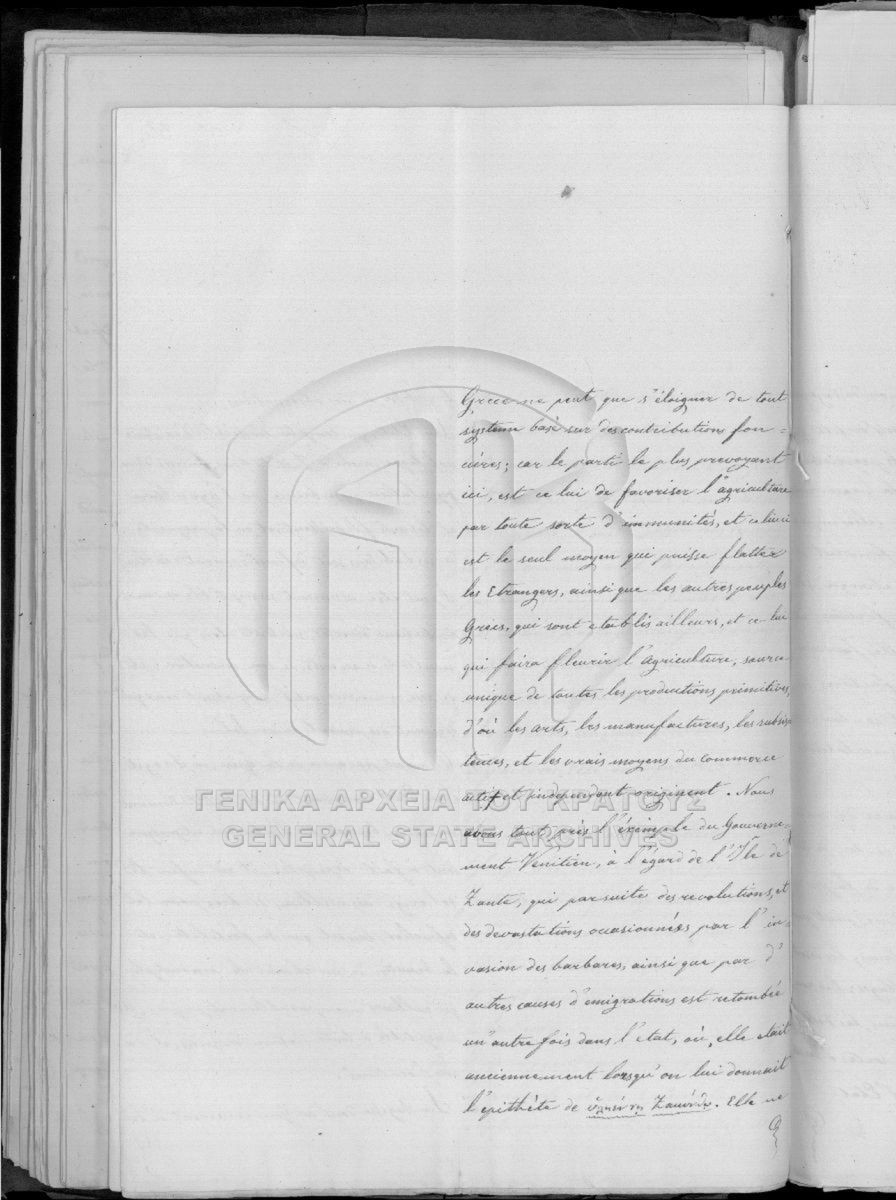 Grece ne peut que s'éloigner de tout
systeme basé sur des contributions fon=
cières; car le parti le plus prevoyant
ici, est ce lui de favoriser l'agriculture
par toute sorte d'immunités, et celui ci
est le seul moyen qui puisse flatter
les Etrangers, ainsi que les autres peuples
Grecs, qui sont etablis ailleurs, et ce lui
qui faira fleurir l'agriculture, source
unique de toutes les productions primitives,
d'où les arts, les manufactures, les subsis
tences, et les vrais moyens du commerce
actif et independant originent. Nous
avons tout près l'exemple du Gouverne=
ment Venitien, à l'égard de l'Ile de
Zante, qui par suite des revolutions, et
des devastations occasionnées par l'in
vasion des barbares, ainsi que par d'
autres causes d'emigrations est retombée
un'autre fois dans l'etat, où, elle etait
anciennement lorsqu'on lui donnait
l'épithéte de Elle ne
ΓΕΝΙΚΑ ΑΡΧΕΙΑ ΤΟΥ ΚΡΑΤΟΥΣ
GENERAL STATE ARCHIVES